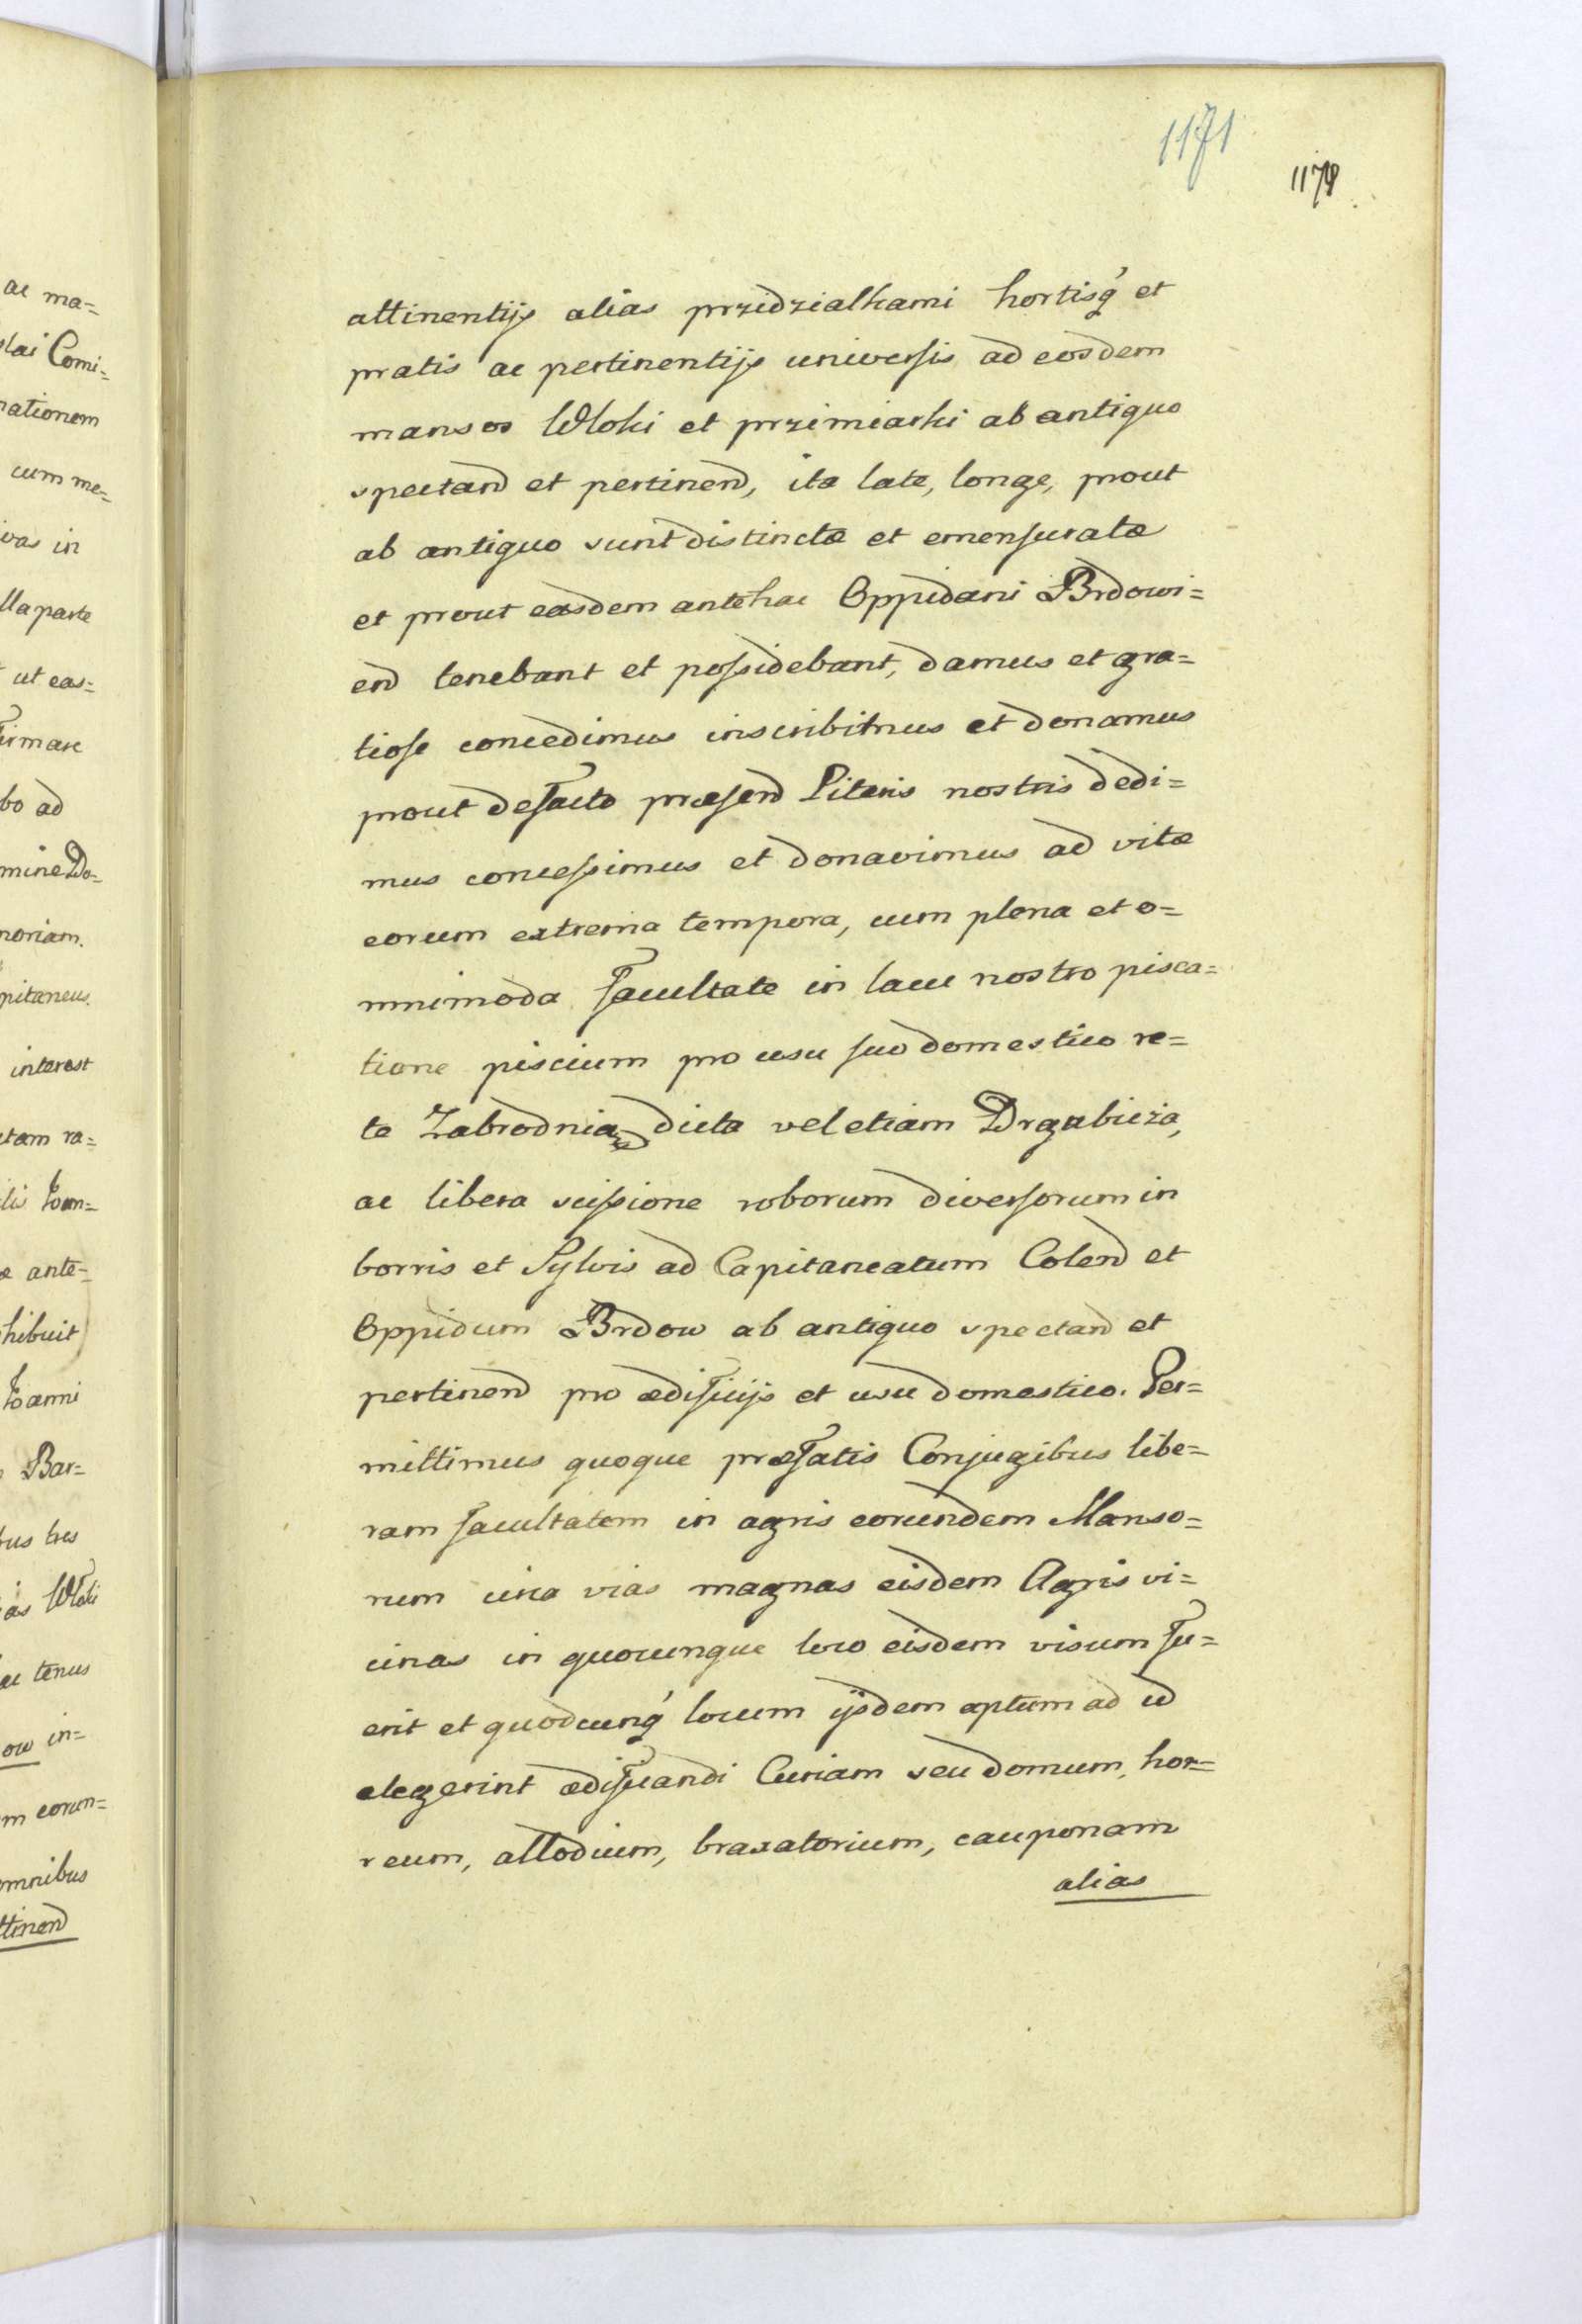 1171
117
ac ma=
lai Comi=
nationem
cum me=
ivas in
lla parte
ut eas=
firmare
bo ad
mine Do=
moriam.
pitaneus.
interest
tam ra=
lis Joan=
æ ante=
hibuit
Joanni
Bar=
bus tres
as Wloki
ac tenus
ow in=
m eorun=
omnibus
ttinen
attinentijs alias przidzialkami hortisq́ et
pratis ac pertinentijs universis ad eosdem
mansos Wloki et przimiarki ab antiquo
spectand et pertinend, ita late, longe, prout
ab antiquo sunt distinctæ et emensuratæ
et prout easdem antehac Oppidani Brdowi=
en tenebant et possidebant, damus et gra=
tiose concedimus inscribimus et donamus
prout defacto præsend Literis nostris dedi=
mus concessimus et donavimus ad vitæ
eorum extrema tempora, cum plena et o=
mnimoda facultate in lacu nostro pisca=
tione piscium pro usu suo domestico re=
te Zabrodnia dicta vel etiam Drgubicza,
ac libera scissione roborum diversorum in
borris et Sylvis ad Capitaneatum Colend et
Oppidum Brdow ab antiquo spectand et
pertinend pro ædificijs et usu domestico. Per=
mittimus quoque præfatis Conjugibus libe=
ram facultatem in agris eorundem Manso=
rum circa vias magnas eisdem Agris vi=
cinas in quocunque loco eisdem visum fu=
erit et quodcunq́ locum ijsdem aptum ad id
elegerint ædificandi Curiam seu domum, hor=
reum, allodium, braxatorium, cauponam
alias